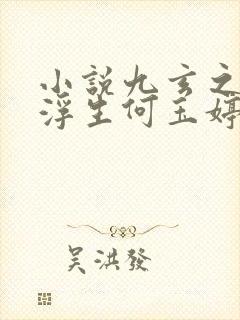 小說九玄之
浮生何玉婷
吴洪發